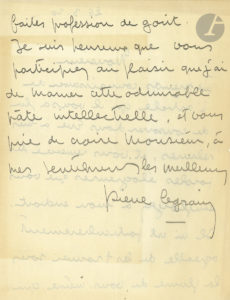 faites profession de goût.
Je suis heureux que vous
participiez au plaisir que j'ai
de manier cette admirable
pâte intellectuelle, et vous
prie de croire Monsieur, à
mes sentiments les meilleurs
Pierre Legrain